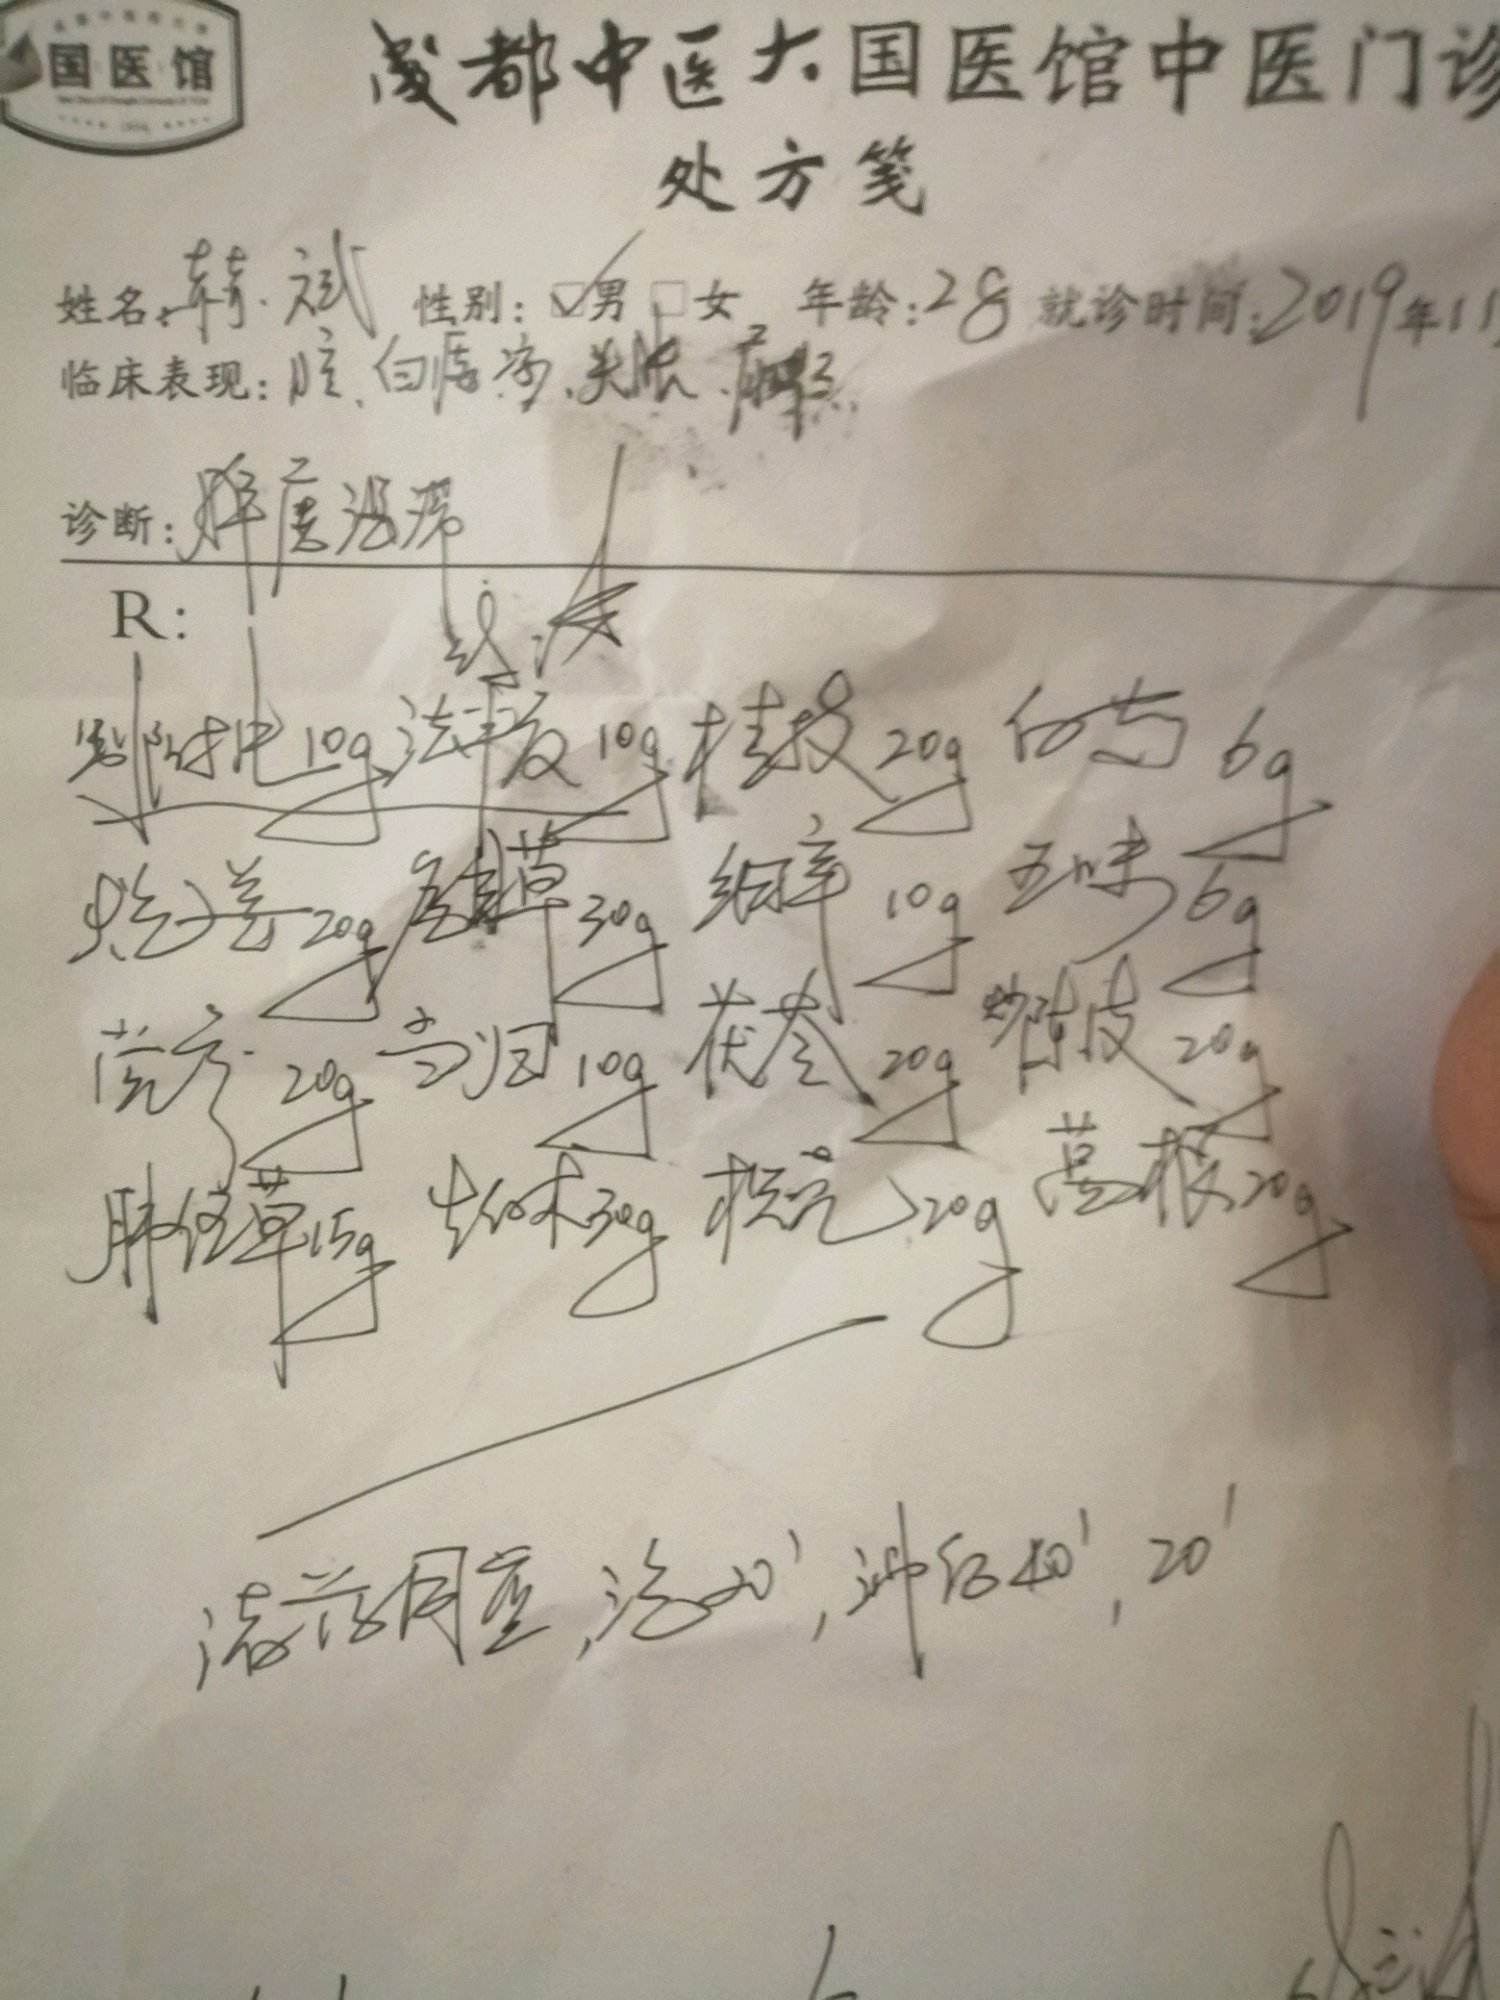 国医馆
成都中医大国医馆中医门诊
处方笺
姓名: 性别: ☑男 □女 年龄:28 就诊时间:2019年11
临床表现:
诊断: 脾虚湿滞
R:
制附片10g 法半夏10g 桂枝20g 白芍6g
炮姜20g 30g 细辛10g 五味6g
党参20g 当归10g 茯苓20g 炒陈皮20g
肺经草15g 生白术30g 枳壳20g 葛根20g
诸药同煎,泡20',沸后40',20'